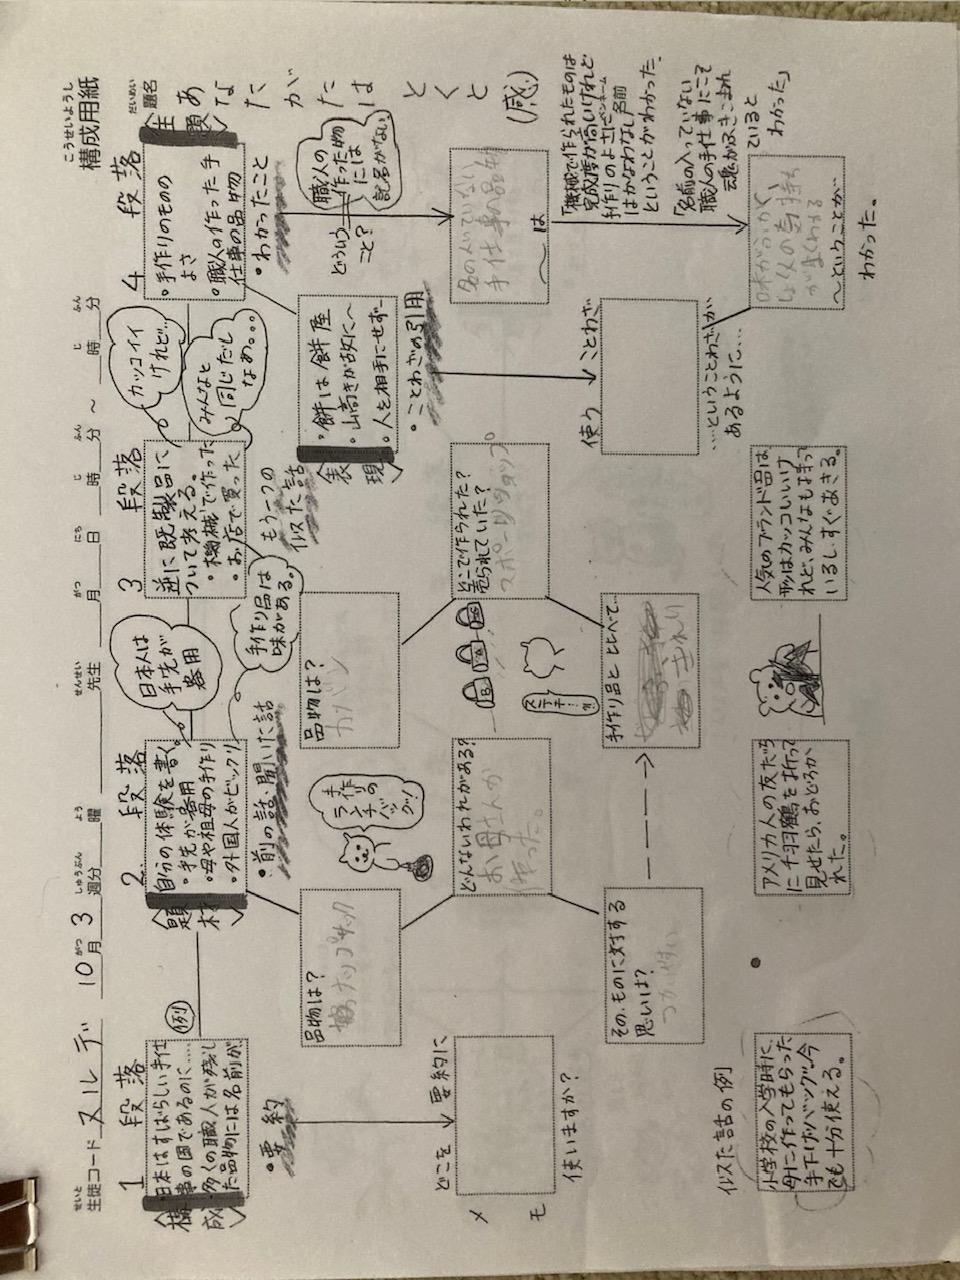 構成用紙
こうせいようし
生徒コード ヌルデ 10月3週分 曜 先生 月 日 時 分 ～ 時 分
題名 あなたがたはとくと(感)
1 段落
〈構成〉
日本はすばらしい手仕
事の国であるのに……
多くの職人が残し
た品物には名前が
例
・要約
どこを要約に
使いますか？
メモ
2 段落
〈題材〉
自分の体験を書く。
・手先が器用
・母や祖母の手作り
・外国人がビックリ
・前の話、聞いた話
日本人は
手先が
器用
手作り品は
味がある。
品物は？
ナップサック
手作りの
ランチ
バッグ！
どんないわれがある？
お母さんが
作った。
その、ものに対する
思いは？
つかいやすい
3 段落
逆に既製品に
ついて考える。
・機械で作った
・お店で買った
もう一つの
似た話
カッコイイ
けれど…
みんなと
同じだし
なあ。。。
品物は？
カバン
どこで作られた？
売られていた？
スポーツショップ
ステキ！
手作り品と比べて…
〈表現〉
・餅は餅屋
・山高きが故に～
・人を相手にせず…
・ことわざの引用
使うことわざ
……ということわざが
あるように…
4 段落
〈主題〉
・手作りのものの
よさ
・職人の作った手
仕事の品物
・わかったこと
職人の
作った物
には
記名がない
どういう
こと？
名の入っていない
手仕事の品物
～は
「機械で作られたものは
完成度が高いけれど
手作りのよさにペンネーム
はかなわない」名前
ということがわかった。
「名前の入っていない
職人の手仕事にこそ
魂がふきこまれ
ていると
わかった」
～ということが…
わかった。
似た話の例
小学校の入学時に、
母に作ってもらった
手下げバッグ…今
でも十分使える。
アメリカ人の友だち
に千羽鶴を折って
見せたら、おどろか
れた。
人気のブランド品は
形はカッコいいけ
れど、みんなもまって
いるし、すぐあきる。